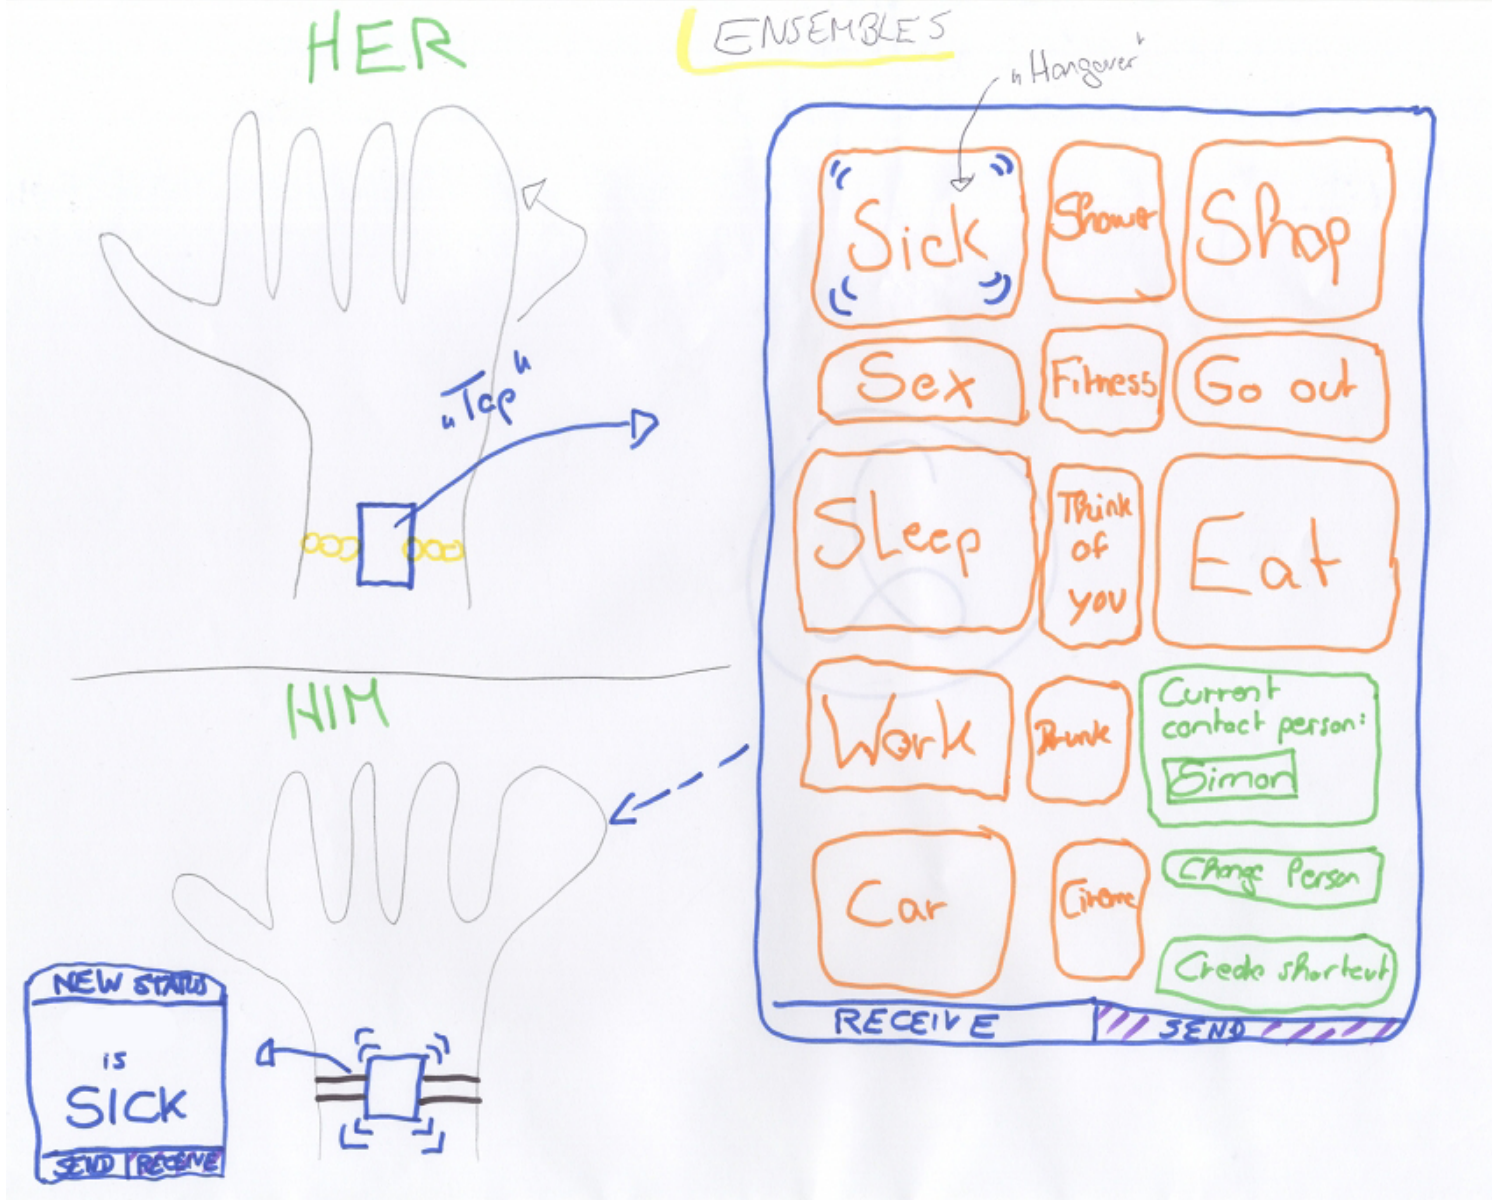 HER
ENSEMBLES
„Hangover"
Sick
Shower
Shop
Sex
Fitness
Go out
„Tap"
Sleep
Think
of
you
Eat
HIM
Work
Drunk
Current
contact person:
Simon
Car
Cinema
Change Person
Create shortcut
RECEIVE
SEND
NEW STATUS
is
SICK
SEND
RECEIVE